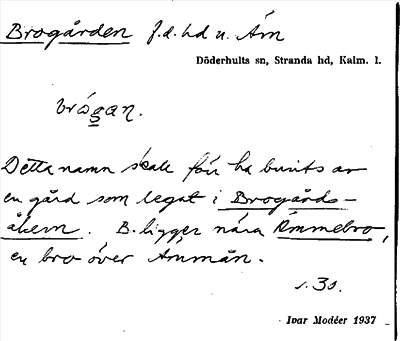 Brogården f.d. hd u. Åm
Döderhults sn, Stranda hd, Kalm. l.
brógan.
Detta namn skall förr ha burits av
en gård som legat i Brogårds-
åkern. B. ligger nära Ämmebro,
en bro över Ämmån.
s. 30.
Ivar Modéer 1937